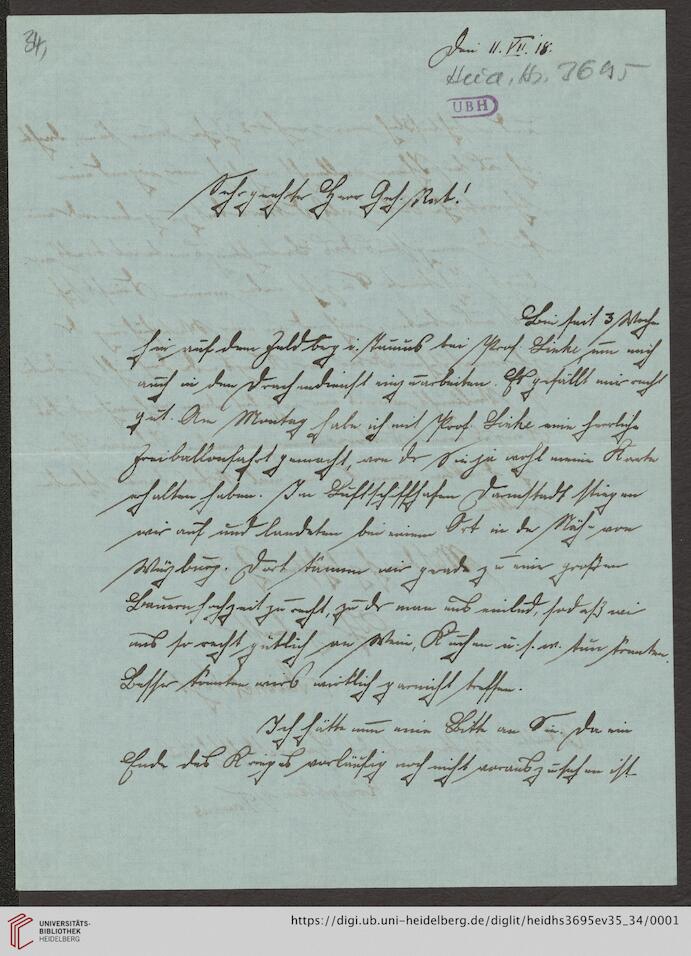 34,
Den 11. VII. 18.
Heid. Hs. 3695
UBH
Sehr geehrter Herr Geh. Rat!
Bin seit 3 Wochen
hier auf dem Feldberg i. Taunus bei Prof. Linke um mich
auch in den Drachendienst einzuarbeiten. Es gefällt mir recht
gut. Am Montag habe ich mit Prof. Linke eine herrliche
Freiballonfahrt gemacht, von der Sie ja wohl meine Karte
erhalten haben. Im Luftschiffhafen Darmstadt stiegen
wir auf und landeten bei einem Ort in der Nähe von
Würzburg. Dort kamen wir gerade zu einer großen
Bauernhochzeit zu recht, zu der man uns einlud, sodaß wir
uns so recht gütlich an Wein, Kuchen u. s. w. tun konnten.
Besser konnten wirs wirklich garnicht treffen.
Ich hätte nun eine Bitte an Sie. Da ein
Ende des Krieges vorläufig noch nicht vorauszusehen ist
UNIVERSITÄTS-
BIBLIOTHEK
HEIDELBERG
https://digi.ub.uni-heidelberg.de/diglit/heidhs3695ev35_34/0001